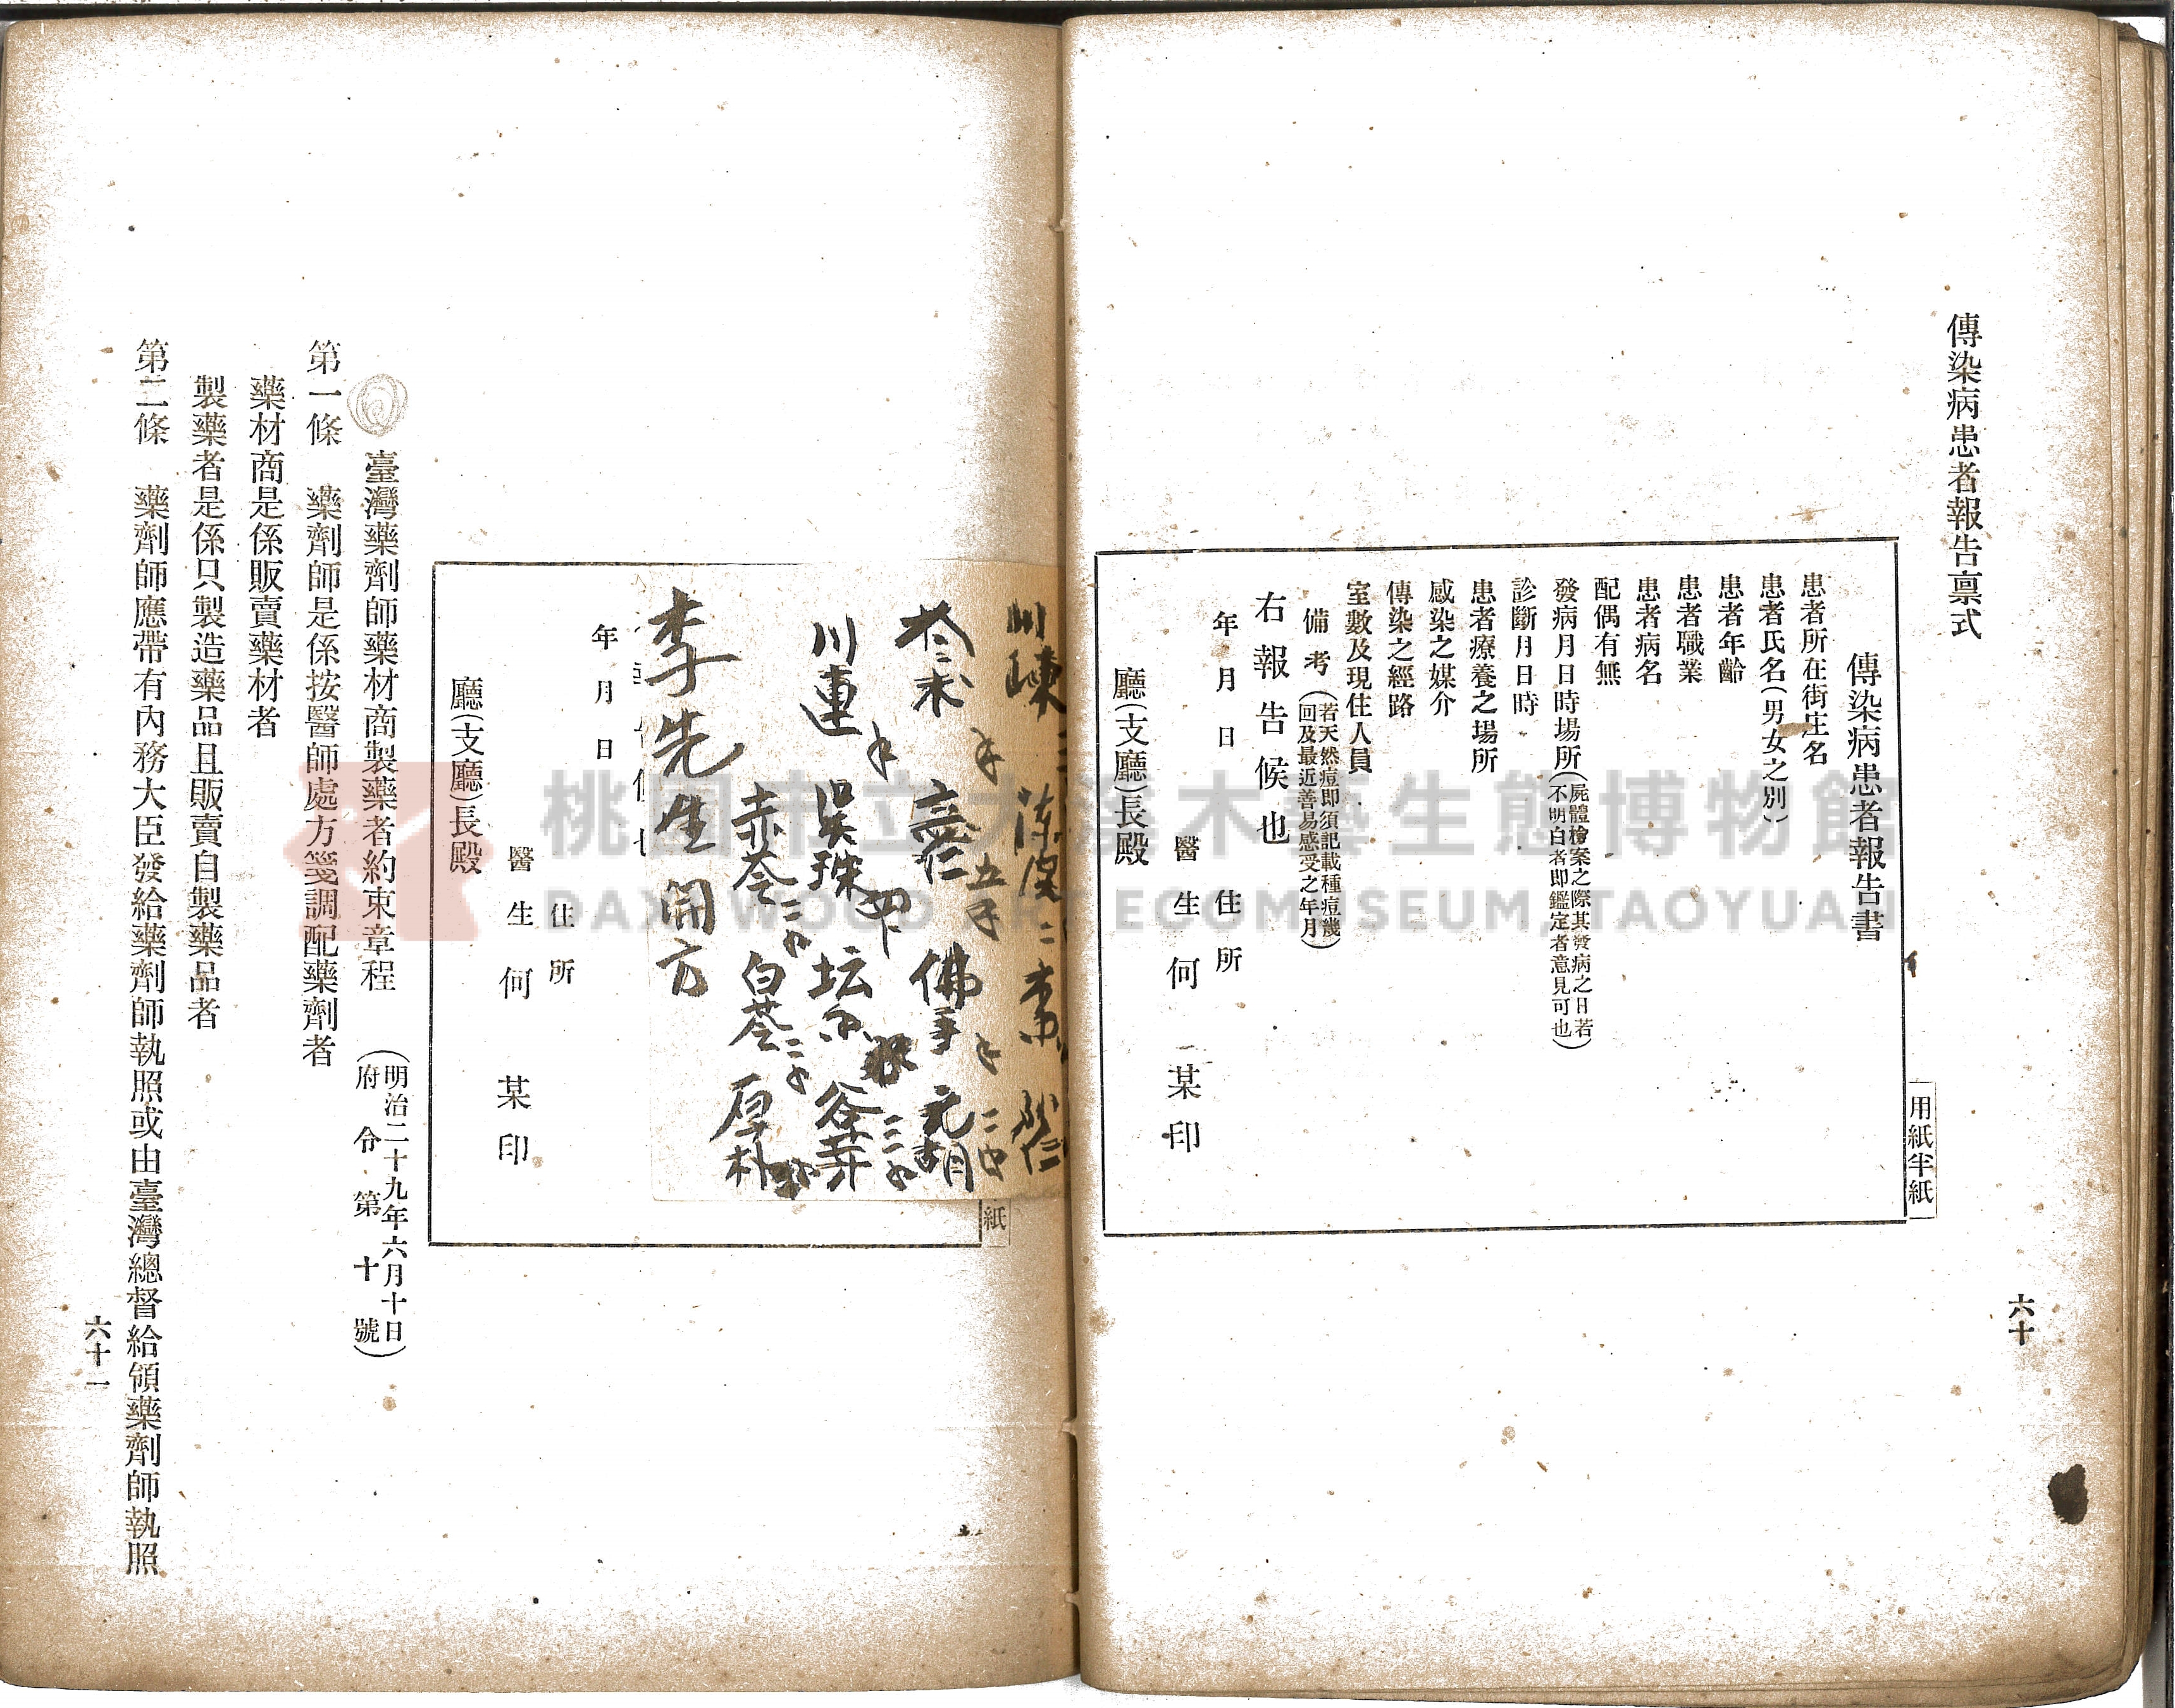 傳染病患者報告禀式
六十
用紙半紙
傳染病患者報告書
患者所在街庄名
患者氏名(男女之別)
患者年齡
患者職業
患者病名
配偶有無
發病月日時場所(屍體檢案之際其發病之日若
不明白者即鑑定者意見可也)
診斷月日時
患者療養之場所
感染之媒介
傳染之經路
室數及現住人員
備考(若天然痘即須記載種痘幾
回及最近善易感受之年月)
右報告候也
年月日
住所
醫生何某印
廳(支廳)長殿
紙
陳皮
佛手 元胡
川連 吳珠
赤苓 白苓 厚朴
李先生開方
年月日
住所
醫生何某印
廳(支廳)長殿
臺灣藥劑師藥材商製藥者約束章程
(明治二十九年六月十日
府令第十號)
第一條 藥劑師是係按醫師處方箋調配藥劑者
藥材商是係販賣藥材者
製藥者是係只製造藥品且販賣自製藥品者
第二條 藥劑師應帶有內務大臣發給藥劑師執照或由臺灣總督給領藥劑師執照
六十一
桃園市立大溪木藝生態博物館
DAXI WOOD ART ECOMUSEUM, TAOYUAN